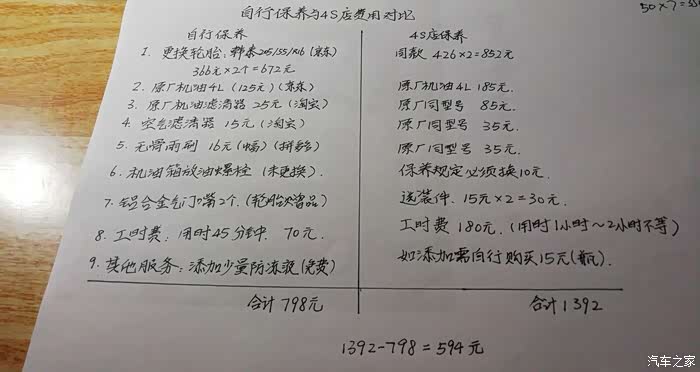 50×7=55
自行保养与4S店费用对比
自行保养
1. 更换轮胎:韩泰205/55/R16(京东)
366元×2个=672元
2. 原厂机油4L(125元)(京东)
3. 原厂机油滤清器25元(淘宝)
4. 空气滤清器 15元(淘宝)
5. 无骨雨刷 16元(幅)(拼多多)
6. 机油箱放油螺栓(未更换).
7. 铝合金气门嘴2个.(轮胎店赠品)
8. 工时费:用时45分钟. 70元.
9. 其他服务:添加少量防冻液(免费)
合计798元
4S店保养
同款 426×2=852元
原厂机油4L 185元.
原厂同型号 85元.
原厂同型号 35元.
原厂同型号 35元.
保养规定必须换10元.
选装件. 15元×2=30元.
工时费 180元.(用时1小时~2小时不等)
如添加需自行购买15元(瓶).
合计1392
1392-798=594元
汽车之家